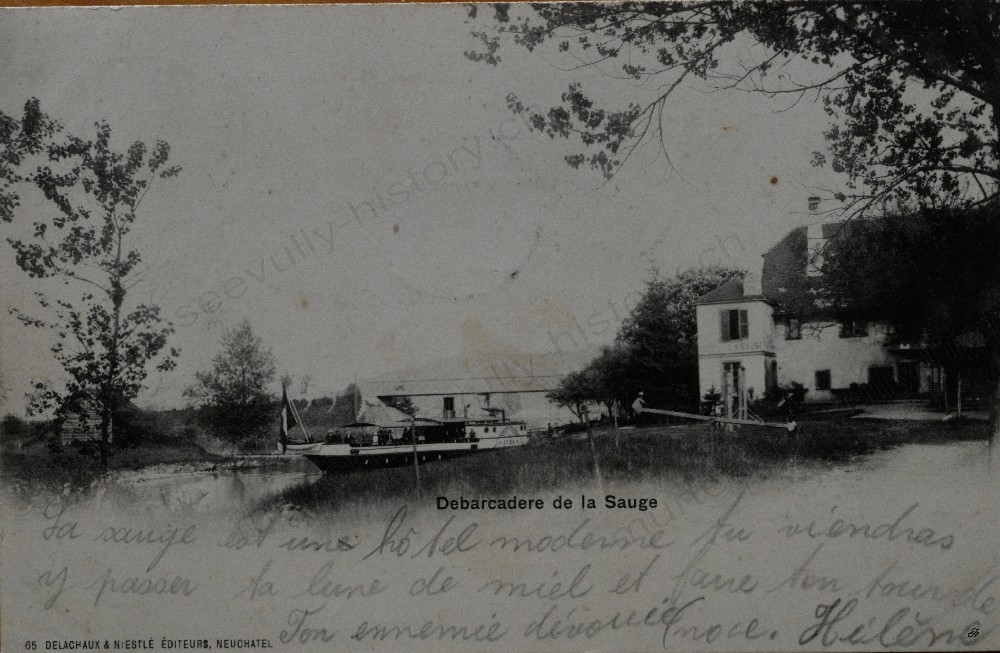 Debarcadere de la Sauge
La sauge est une hôtel moderne tu viendras
y passer ta lune de miel et faire ton tour de
Ton ennemie dévouée (noie. Hélène
65 DELACHAUX & NIESTLÉ ÉDITEURS, NEUCHATEL
seevully-history.ch
seevully-history.ch